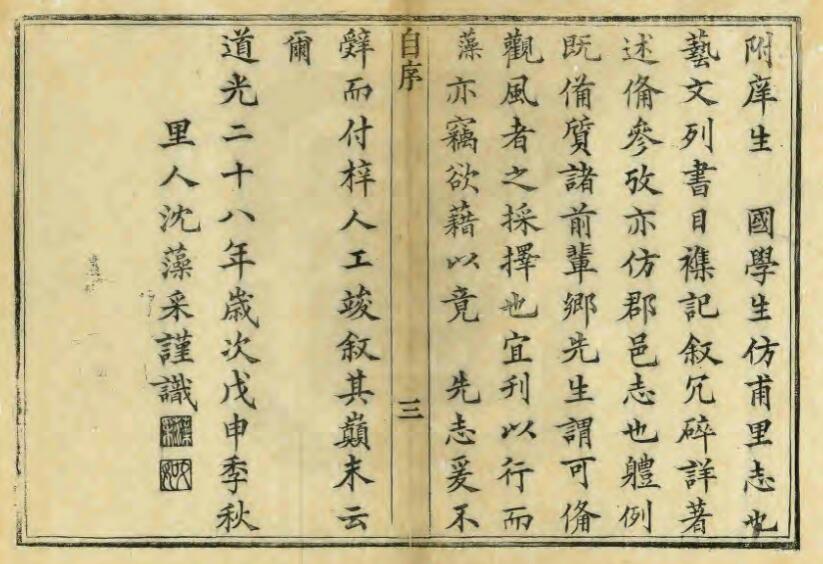 附庠生　國學生仿甫里志也
藝文列書目襍記叙冗碎詳著
述俻參攷亦仿郡邑志也軆例
既俻質諸前輩鄉先生謂可俻
觀風者之採擇也宜刊以行而
藻亦竊欲藉以竟　先志爰不
自序　三
辤而付梓人工竣叙其巔末云
爾
道光二十八年歲次戊申季秋
里人沈藻采謹識